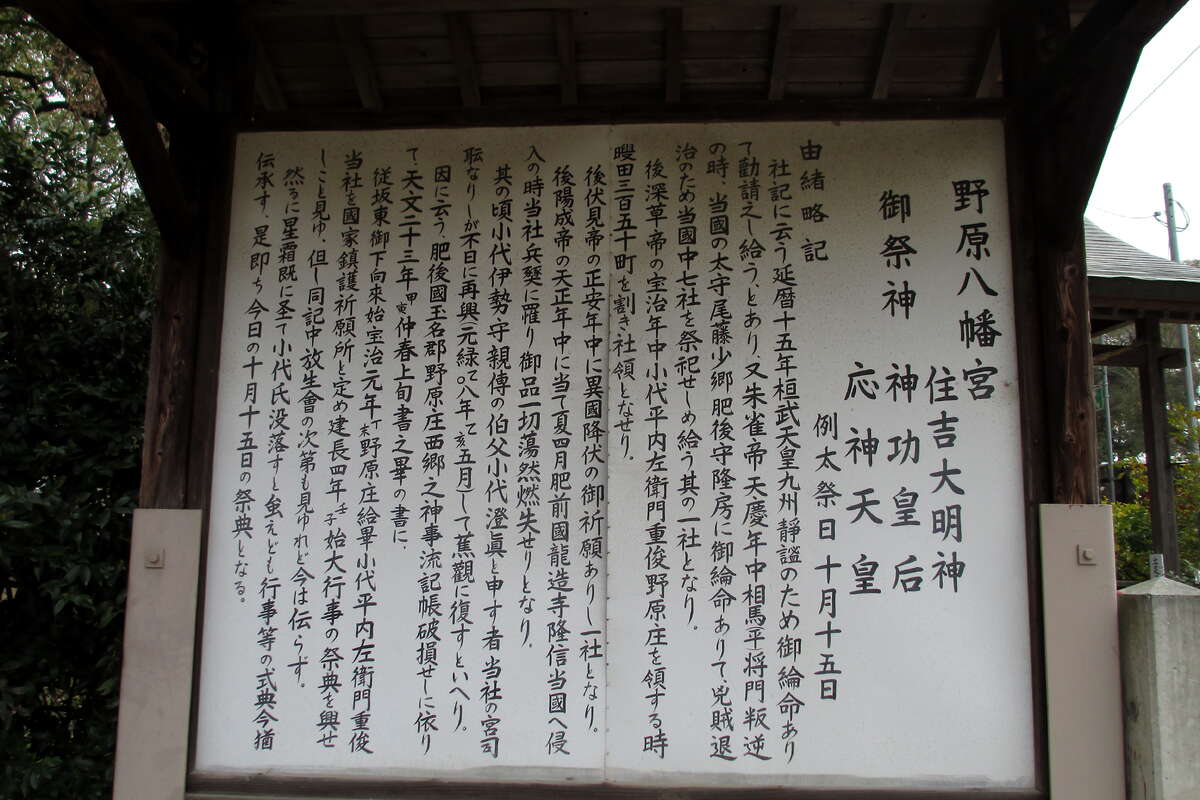 野原八幡宮
御祭神
住吉大明神
神功皇后
応神天皇
例太祭日 十月十五日
由緒略記
社記に云う延暦十五年桓武天皇九州靜謐のため御綸命あり
て勸請之し給う、とあり又朱雀帝天慶年中相馬(平)将門叛逆
の時、当國の太守尾藤少郷肥後守隆房に御綸命ありて兇賊退
治のため当國中七社を祭祀せしめ給う其の一社となり。
後深草帝の宝治年中小代平内左衛門重俊野原庄を領する時
田三百五十町を割き社領となせり。
後伏見帝の正安年中に異國降伏の御祈願ありし一社となり。
後陽成帝の天正年中に当て夏四月肥前國龍造寺隆信当國へ侵
入の時当社兵燹に罹り御品一切蕩然燃失せりとなり。
其の頃小代伊勢守親傳の伯父小代澄眞と申す者当社の宮司
なりしが不日に再興(元緑て八年て亥五月)して蕉觀に復すといへり。
因に云う、肥後國玉名郡野原庄西郷之神事流記帳破損せしに依り
て、天文二十三年甲寅仲春上旬書之畢の書に、
従坂東御下向來始宝治元年丁未野原庄給畢小代平内左衛門重俊
当社を國家鎮護祈願所と定め建長四年壬子始大行事の祭典を興せ
しこと見ゆ、但し同記中放生會の次第も見ゆれど今は伝らず。
然るに星霜既に圣て小代氏没落すと虽えども行事等の式典今猶
伝承す、是即ち今日の十月十五日の祭典となる。